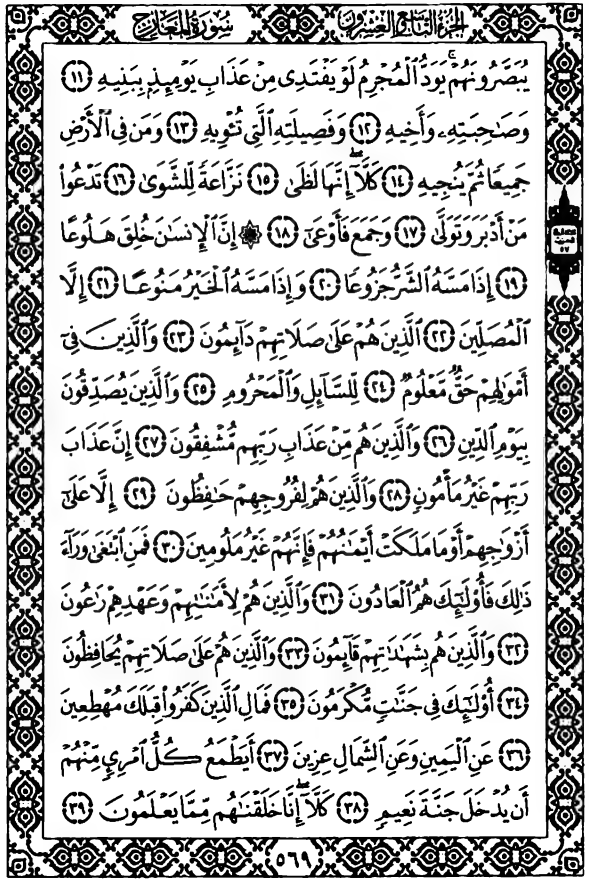 سورة المعارج    الجزء التاسع والعشرون
يُبَصَّرُونَهُمْ ۚ يَوَدُّ ٱلْمُجْرِمُ لَوْ يَفْتَدِى مِنْ عَذَابِ يَوْمِئِذٍۭ بِبَنِيهِ ١١
وَصَٰحِبَتِهِۦ وَأَخِيهِ ١٢ وَفَصِيلَتِهِ ٱلَّتِى تُـْٔوِيهِ ١٣ وَمَن فِى ٱلْأَرْضِ
جَمِيعًا ثُمَّ يُنجِيهِ ١٤ كَلَّآ ۖ إِنَّهَا لَظَىٰ ١٥ نَزَّاعَةً لِّلشَّوَىٰ ١٦ تَدْعُوا۟
مَنْ أَدْبَرَ وَتَوَلَّىٰ ١٧ وَجَمَعَ فَأَوْعَىٰٓ ١٨ ۞ إِنَّ ٱلْإِنسَٰنَ خُلِقَ هَلُوعًا
١٩ إِذَا مَسَّهُ ٱلشَّرُّ جَزُوعًا ٢٠ وَإِذَا مَسَّهُ ٱلْخَيْرُ مَنُوعًا ٢١ إِلَّا
ٱلْمُصَلِّينَ ٢٢ ٱلَّذِينَ هُمْ عَلَىٰ صَلَاتِهِمْ دَآئِمُونَ ٢٣ وَٱلَّذِينَ فِىٓ
أَمْوَٰلِهِمْ حَقٌّ مَّعْلُومٌ ٢٤ لِّلسَّآئِلِ وَٱلْمَحْرُومِ ٢٥ وَٱلَّذِينَ يُصَدِّقُونَ
بِيَوْمِ ٱلدِّينِ ٢٦ وَٱلَّذِينَ هُم مِّنْ عَذَابِ رَبِّهِم مُّشْفِقُونَ ٢٧ إِنَّ عَذَابَ
رَبِّهِمْ غَيْرُ مَأْمُونٍ ٢٨ وَٱلَّذِينَ هُمْ لِفُرُوجِهِمْ حَٰفِظُونَ ٢٩ إِلَّا عَلَىٰٓ
أَزْوَٰجِهِمْ أَوْ مَا مَلَكَتْ أَيْمَٰنُهُمْ فَإِنَّهُمْ غَيْرُ مَلُومِينَ ٣٠ فَمَنِ ٱبْتَغَىٰ وَرَآءَ
ذَٰلِكَ فَأُو۟لَٰٓئِكَ هُمُ ٱلْعَادُونَ ٣١ وَٱلَّذِينَ هُمْ لِأَمَٰنَٰتِهِمْ وَعَهْدِهِمْ رَٰعُونَ
٣٢ وَٱلَّذِينَ هُم بِشَهَٰدَٰتِهِمْ قَآئِمُونَ ٣٣ وَٱلَّذِينَ هُمْ عَلَىٰ صَلَاتِهِمْ يُحَافِظُونَ
٣٤ أُو۟لَٰٓئِكَ فِى جَنَّٰتٍ مُّكْرَمُونَ ٣٥ فَمَالِ ٱلَّذِينَ كَفَرُوا۟ قِبَلَكَ مُهْطِعِينَ
٣٦ عَنِ ٱلْيَمِينِ وَعَنِ ٱلشِّمَالِ عِزِينَ ٣٧ أَيَطْمَعُ كُلُّ ٱمْرِئٍ مِّنْهُمْ
أَن يُدْخَلَ جَنَّةَ نَعِيمٍ ٣٨ كَلَّآ ۖ إِنَّا خَلَقْنَٰهُم مِّمَّا يَعْلَمُونَ ٣٩
٥٦٩